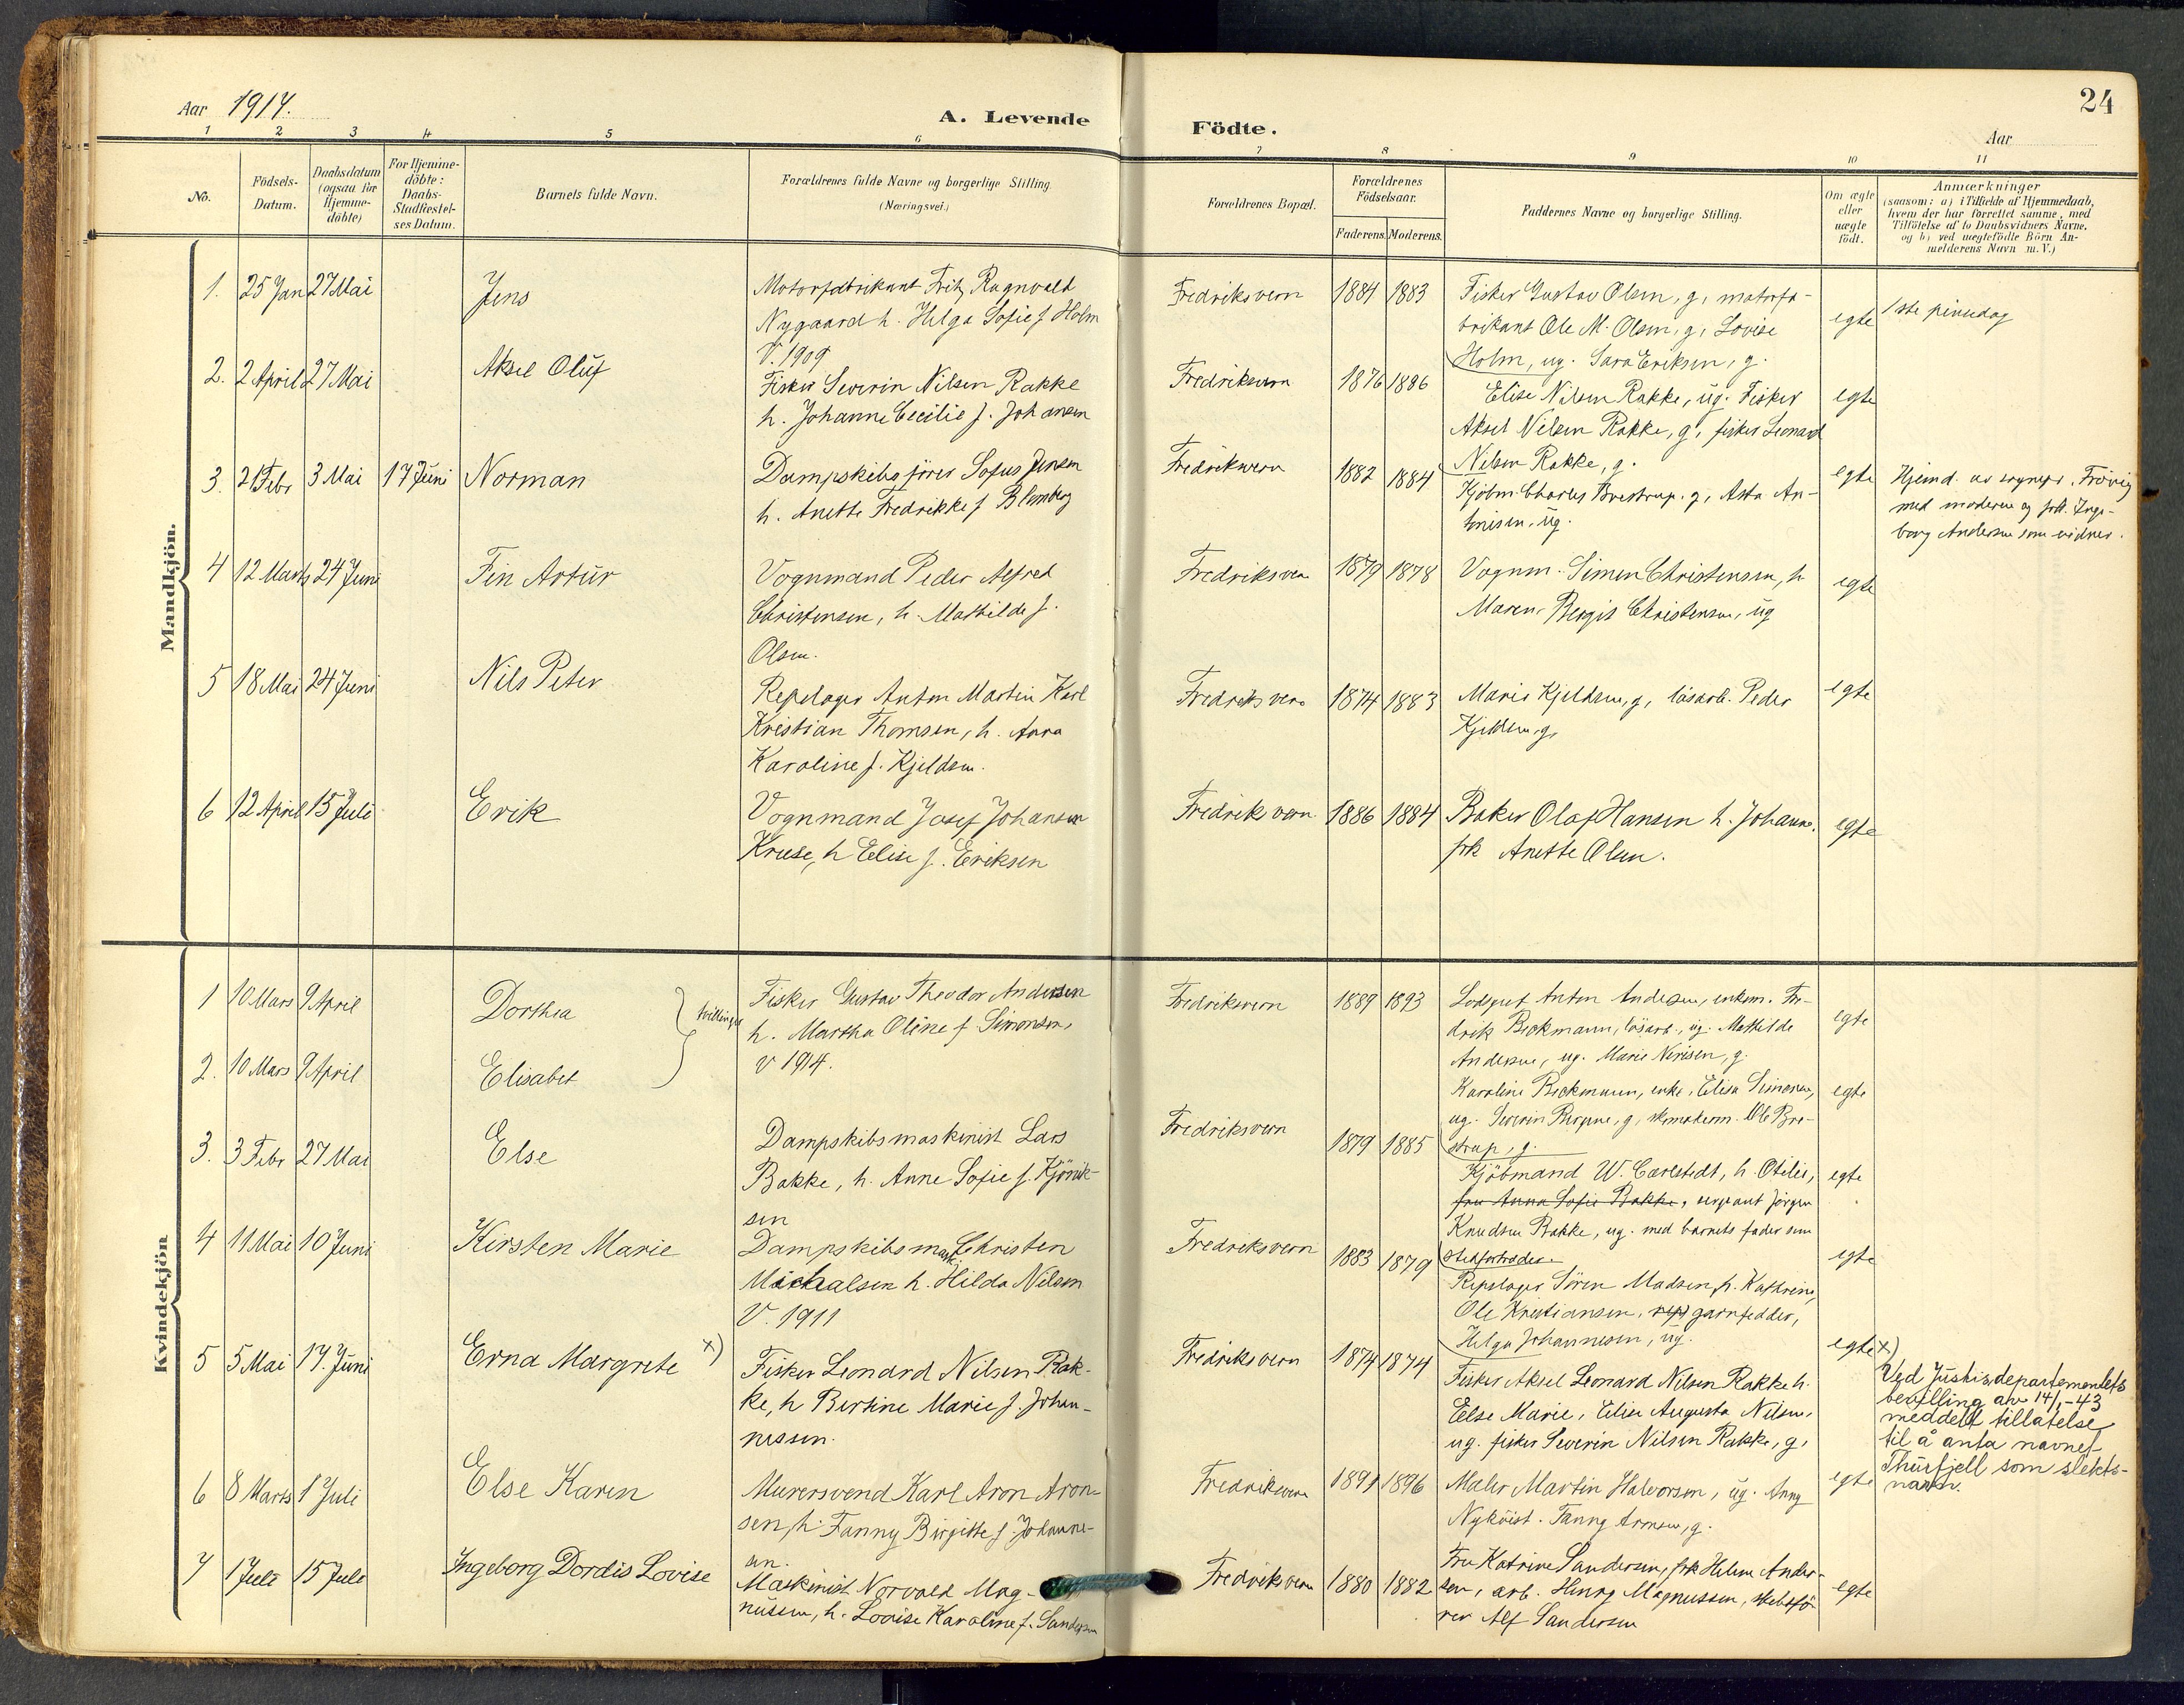 24
Aar 1917.
A. Levende Födte.
Aar
1 2 3 4 5 6 7 8 9 10 11
No.
Födsels-
Datum.
Daabsdatum
(ogsaa for
Hjemme-
döbte)
For Hjemme-
döbte:
Daabs-
Stadfæstel-
ses Datum.
Barnets fulde Navn.
Forældrenes fulde Navne og borgerlige Stilling.
(Næringsvei.)
Forældrenes Bopæl.
Forældrenes
Födselsaar.
Faderens. Moderens.
Faddernes Navne og borgerlige Stilling.
Om ægte
eller
uægte
födt.
Anmærkninger
(saasom: a) i Tilfælde af Hjemmedaab,
hvem der har forrettet samme, med
Tilföielse af to Daabsvidners Navne.
og b) ved uægtefödte Börn An-
melderens Navn m. V.)
Mandkjön.
1. 25 Jan 27 Mai Jens
Motorfabrikant Fritz Ragnvald
Nygaard h. Helga Sofie f Holm
V. 1909
Fredriksvern 1884 1883
Fisker Gustav Olsen, g, motorfa-
brikant Ole M. Olsen, g, Lovise
Holm, ug. Sara Eriksen, g.
egte
1ste pinsedag
2. 2 April 27 Mai Aksel Oluf
Fisker Severin Nilsen Rakke
h. Johanne Cecilie f. Johansen
Fredriksvern 1876 1886
Elise Nilsen Rakke, ug. Fisker
Aksel Nilsen Rakke, g, fisker Leonard
Nilsen Rakke, g.
egte
3. 21 Febr 3 Mai 17 Juni Norman
Dampskibsförer Sofus Jensen
h. Anette Fredrikke f Blomberg
Fredriksvern 1882 1884
Kjöbm. Charles Brestrup. g, Asta An-
tonisen, ug.
egte
Hjemd. av sognepr. Frövig
med moderen og frk. Inge-
borg Andersen som vidner.
4 12 Marts 24 Juni Fin Artur
Vognmand Peder Alfred
Christensen, h. Mathilde f.
Olsen.
Fredriksvern 1879 1878
Vognm. Simen Christensen, h
Maren, Bergit Christensen, ug
egte
5 18 Mai 24 Juni Nils Peter
Repslager Anton Martin Karl
Kristian Thomsen, h. Anna
Karoline f. Kjeldsen.
Fredriksvern 1874 1883
Marie Kjeldsen, g, lösarb. Peder
Kjeldsen, g,
egte
6 12 April 15 Juli Erik
Vognmand Josef Johansen
Kruse, h Elise f. Eriksen
Fredriksvern 1886 1884
Baker Olaf Hansen h. Johanne.
frk Anette Olsen.
egte
Kvindekjön
1 10 Mars 9 April Dorthea
tvillinger
Fisker Gustav Theodor Andersen
h. Martha Oline f Simonsen,
V 1914.
Fredriksvern 1889 1893
Anton Andersen, enkem. Fre-
drik Beckmann, lösarb., ug. Mathilde
Andersen, ug. Marie Nirisen, g.
egte
2. 10 Mars 9 April Elisabet
Karoline Beckmann, enke, Elisa Simonsen,
ug. Severin g, skomakerm. Ole Bre-
strup, g.
egte
3. 3 Febr 27 Mai Else
Dampskibsmaskinist Lars
Bakke, h. Anne Sofie f. Kjönik-
sen
Fredriksvern 1879 1885
Kjöbmand W. Carlstedt, h. Otilie,
fru Anna Sofie Bakke, sergeant Jörgen
Knudsen Bakke, ug. med barnets fader som
stedfortreder
egte
4 11 Mai 10 Juni Kirsten Marie
Dampskibsmask. Christen
Michalsen h. Hilda Nilsen
V. 1911
Fredriksvern 1883 1879
Repslager Sören Madsen, h. Kathrine,
Ole Kristiansen, reps garnfedder,
Helga Johannesen, ug.
egte
5 5 Mai 17. Juni Erna Margrete x)
Fisker Leonard Nilsen Rak-
ke, h Bertine Marie f. Johan-
nessen.
Fredriksvern 1874 1874
Fisker Aksel Leonard Nilsen Rakke h.
Else Marie, Elise Augusta Nilsen,
ug. fisker Severin Nilsen Rakke, g,
egte
x)
Ved Justisdepartementets
bevilling av 14/1-43
meddelt tillatelse
til å anta navnet
Thurfjell som slekts-
navn.
6 8 Marts 1 Juli Else Karen
Murersvend Karl Aron Aron-
sen, h. Fanny Birgitte f Johanne-
sen.
Fredriksvern 1891 1896
Maler Martin Halvorsen, ug. Anny
Nyköist. Fanny Aronsen, g.
egte
7 1 Juli 15 Juli Ingeborg Dordis Lovise
Maskinist Norvald Mag-
nussen, h. Lovise Karoline f. Sandersen
Fredriksvern 1880 1882
Fru Katrine Sandersen, frk Helene Ander-
sen, arb. Henry Magnussen, skibsfö-
rer Alf Sandersen
egte